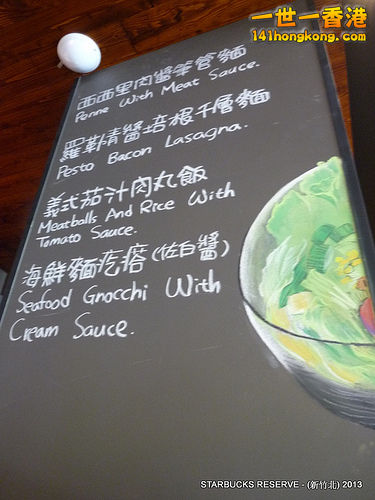 一世一香港
141hongkong.com
西西里肉醬筆管麵
Penne With Meat Sauce.
羅勒青醬培根千層麵
Pesto Bacon Lasagna.
義式茄汁肉丸飯
Meatballs And Rice With
Tomato Sauce.
海鮮麵疙瘩(佐白醬)
Seafood Gnocchi With
Cream Sauce.
STARBUCKS RESERVE - (新竹北) 2013